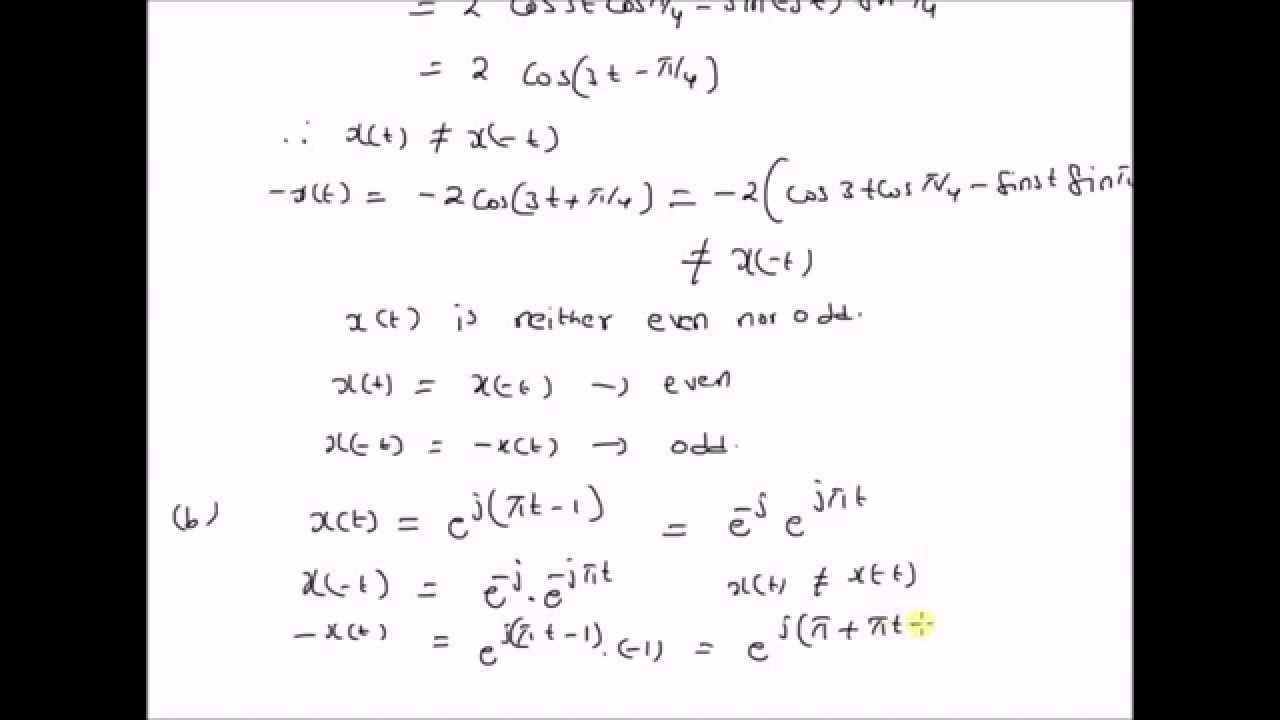 = 2 cos 3t cos π/4 - sin(3t) sin π/4
= 2 cos(3t - π/4)
∴ x(t) ≠ x(-t)
-x(t) = -2 cos(3t + π/4) = -2(cos 3t cos π/4 - sin 3t sin π/
≠ x(-t)
x(t) is neither even nor odd.
x(t) = x(-t) → even
x(-t) = -x(t) → odd.
(b) x(t) = e^{j(πt - 1)} = e^{-j} e^{jπt}
x(-t) = e^{-j} . e^{-jπt} x(t) ≠ x(-t)
-x(t) = e^{j(πt - 1)} . (-1) = e^{j(π + πt -